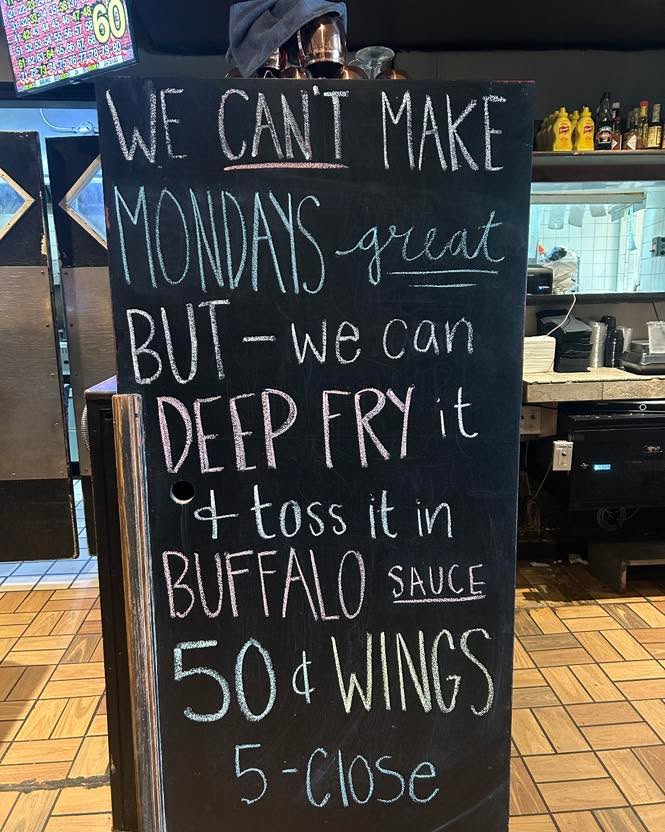 60
WE CAN'T MAKE
MONDAYS great
BUT - we can
DEEP FRY it
& toss it in
BUFFALO SAUCE
50¢ WINGS
5-Close